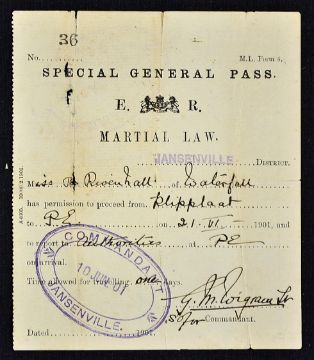 36
No. M.L. Form 6.
SPECIAL GENERAL PASS.
E. R.
MARTIAL LAW.
JANSENVILLE DISTRICT.
Miss of Waterfall
has permission to proceed from Klipplaat
to P.E. on 21-VI- 1901, and
to report to authorities at PE
on arrival.
Time allowed for travelling one days.
COMMANDANT
10 JUN. 01
JANSENVILLE.
for Commandant.
Dated 1901.